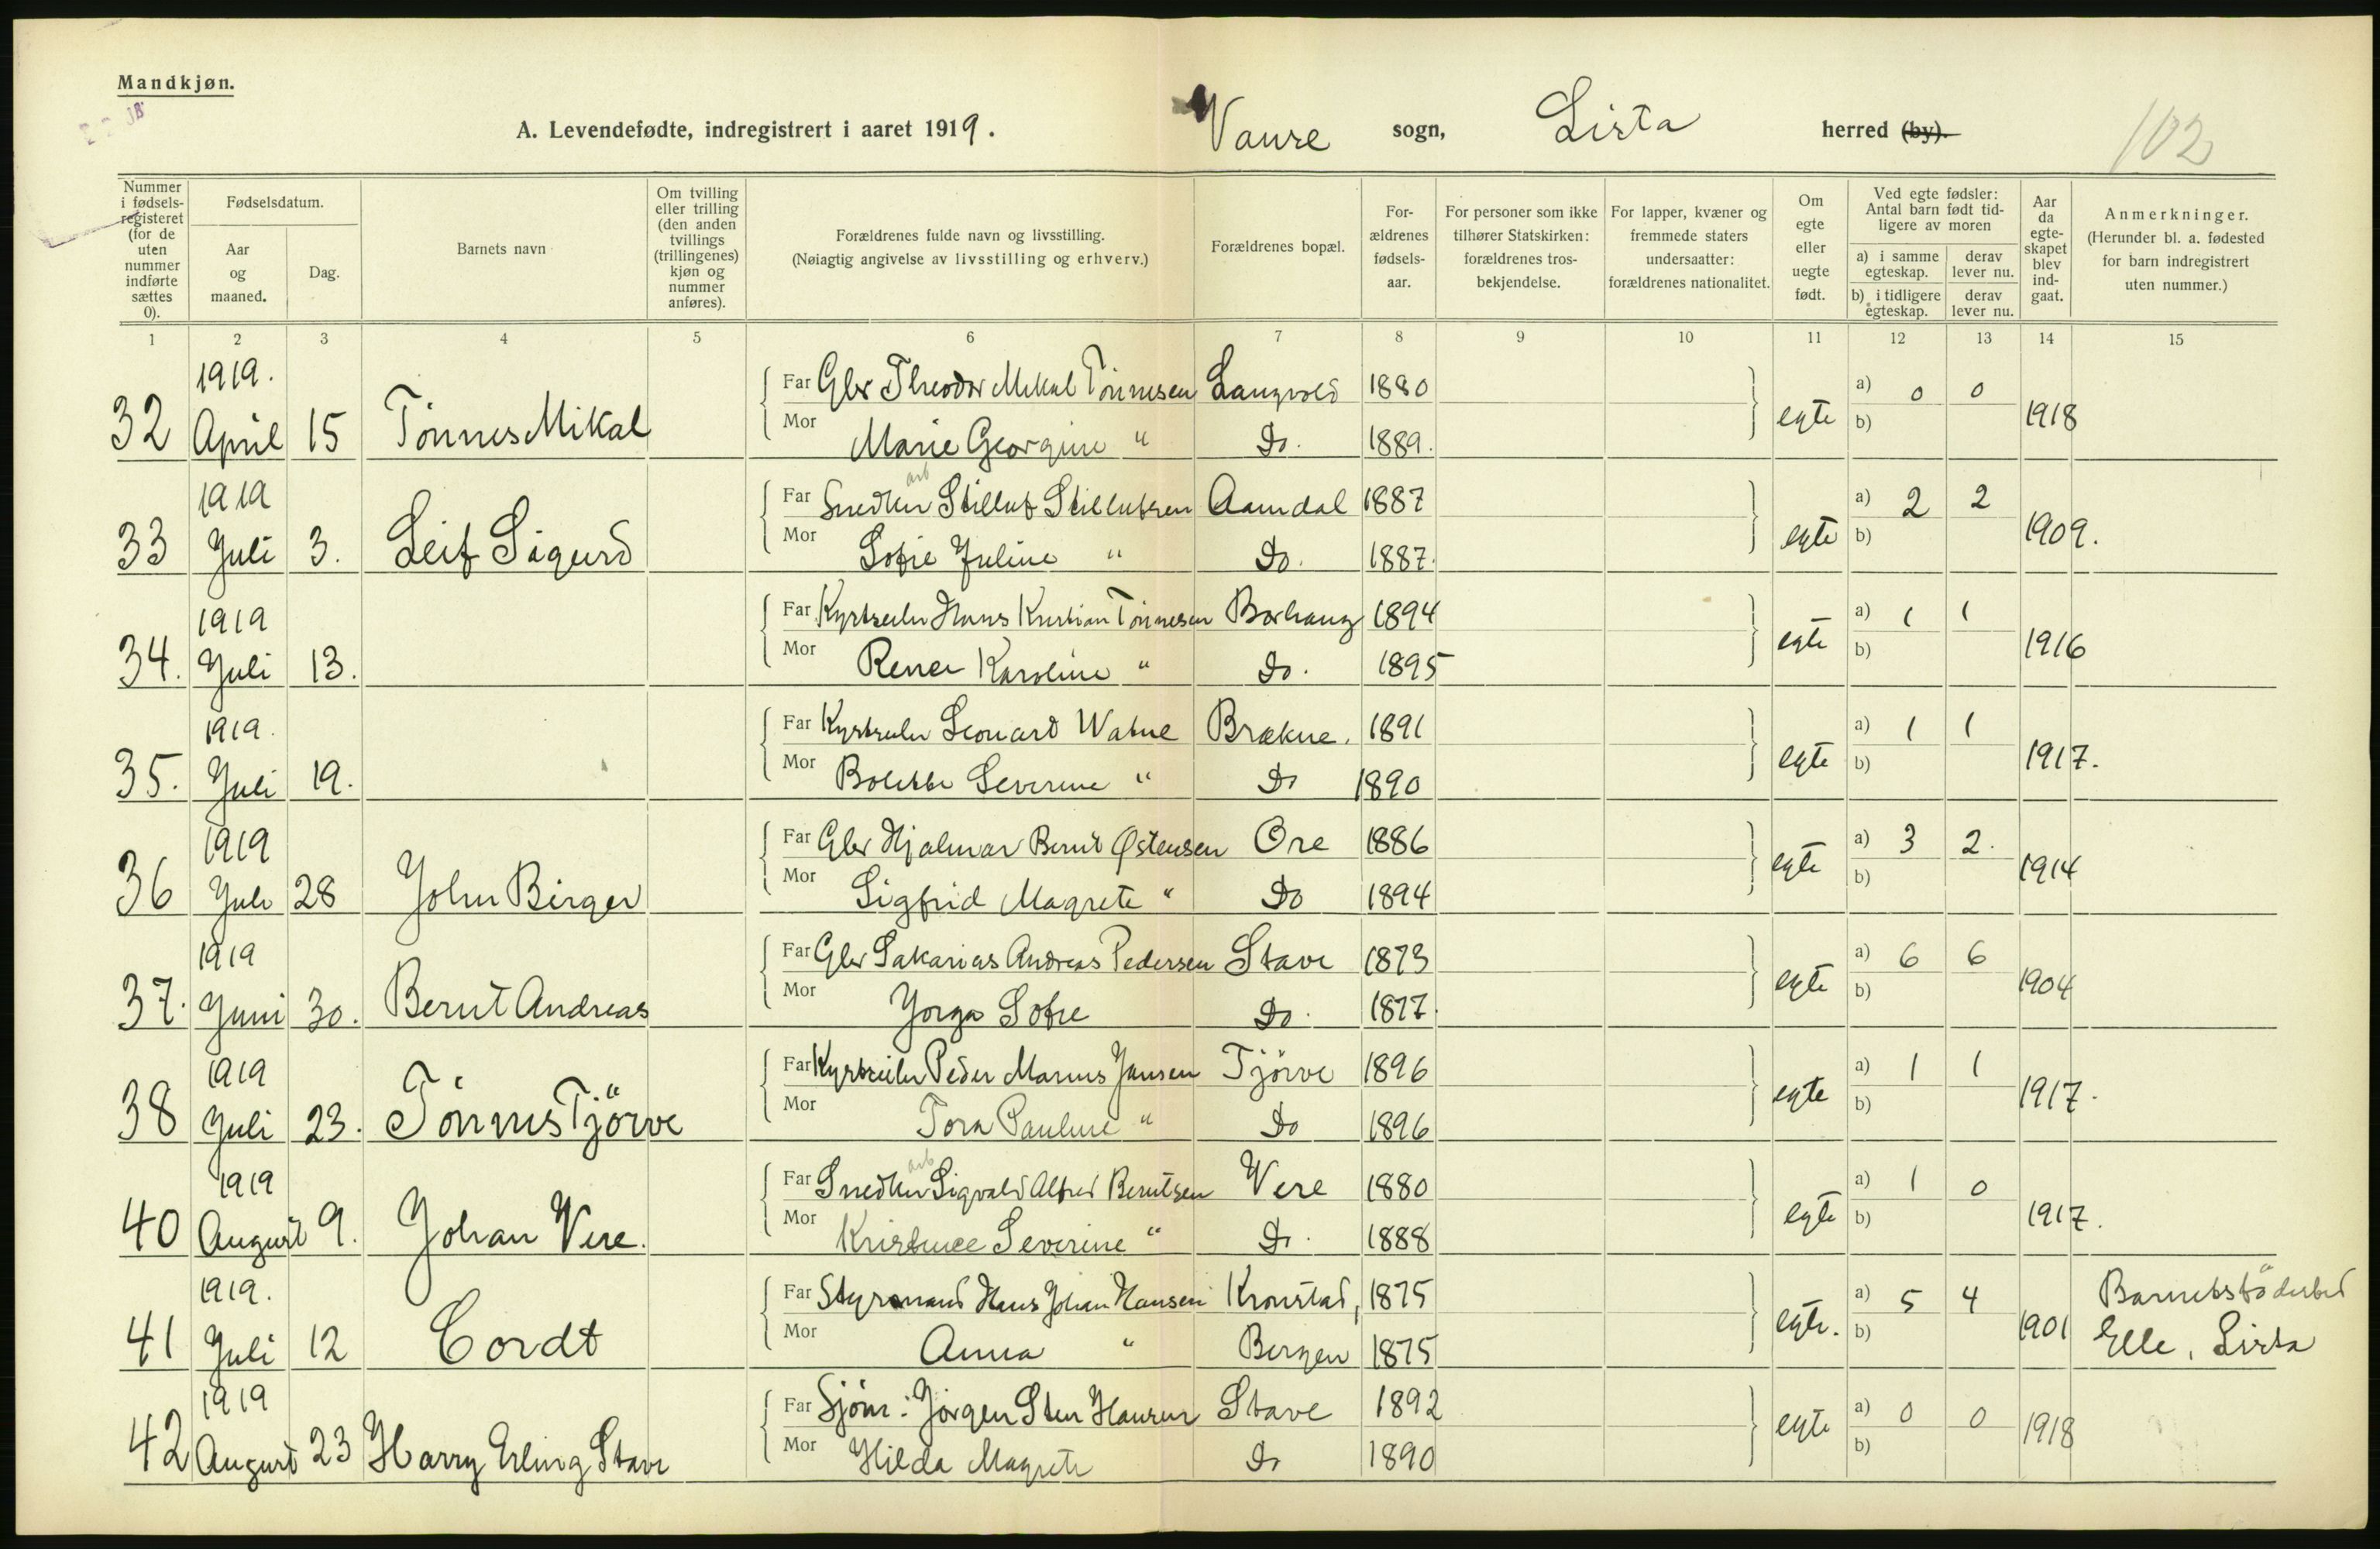 Mandkjøn.
A. Levendefødte, indregistrert i aaret 1919. Vanse sogn, Lista herred (by). 102
Nummer i fødsels-registeret (for de uten nummer indførte sættes 0).
Fødselsdatum.
Aar og maaned.
Dag.
Barnets navn
Om tvilling eller trilling (den anden tvillings (trillingenes) kjøn og nummer anføres).
Forældrenes fulde navn og livsstilling.
(Nøiagtig angivelse av livsstilling og erhverv.)
Forældrenes bopæl.
For-ældrenes fødsels-aar.
For personer som ikke tilhører Statskirken: forældrenes tros-bekjendelse.
For lapper, kvæner og fremmede staters undersaatter: forældrenes nationalitet.
Om egte eller uegte født.
Ved egte fødsler: Antal barn født tid-ligere av moren
a) i samme egteskap. derav lever nu.
b) i tidligere egteskap. derav lever nu.
Aar da egte-skapet blev ind-gaat.
Anmerkninger.
(Herunder bl. a. fødested for barn indregistrert uten nummer.)
1 2 3 4 5 6 7 8 9 10 11 12 13 14 15
1919. Far Gbr Theodor Mikal Tönnesen Langvold 1880 a) 0 0
32 April 15 Tönnes Mikal Mor Marie Georgine " Do. 1889. egte b) 1918
1919 Far Snedker arb Stilluf Stillufsen Aamdal 1887 a) 2 2
33 Juli 3. Leif Sigurd Mor Sofie Juline " Do. 1887. egte b) 1909.
1919 Far Kystseiler Hans Kristian Tönnesen Borhaug 1894 a) 1 1
34. Juli 13. Mor Karoline " Do. 1895 egte b) 1916
1919. Far Kystseiler Leonard Watne Brækne. 1891 a) 1 1
35. Juli 19. Mor Bolette Severine " Do 1890 egte b) 1917.
1919 Far Gbr Hjalmar Bernt Østensen Ore 1886 a) 3 2.
36 Juli 28 John Birger Mor Sigfrid Magrete " Do 1894 egte b) 1914
1919 Far Gbr Sakarias Andreas Pedersen Stave 1873 a) 6 6
37. Juni 30. Bernt Andreas Mor Sofie Do. 1877. egte b) 1904
1919 Far Kystseiler Peder Marius Jansen Tjörve 1896 a) 1 1
38 Juli 23. Tönnes Tjörve Mor Tora Pauline " Do 1896 egte b) 1917.
1919 Far Snedker arb Sigvald Alfred Berntsen Vere 1880 a) 1 0
40 August 9. Johan Vere. Mor Severine " Do. 1888 egte b) 1917.
1919. Far Styrmand Hans Johan Hansen Kronstad, 1875 a) 5 4 Barnets födested
41 Juli 12 Cordt Mor Anna " Bergen 1875 egte. b) 1901 Elle, Lista
1919 Far Sjöm: Jörgen Sten Hansen Stave 1892 a) 0 0
42 August 23 Harry Erling Stave Mor Hilda Magrete Do 1890 egte b) 1918